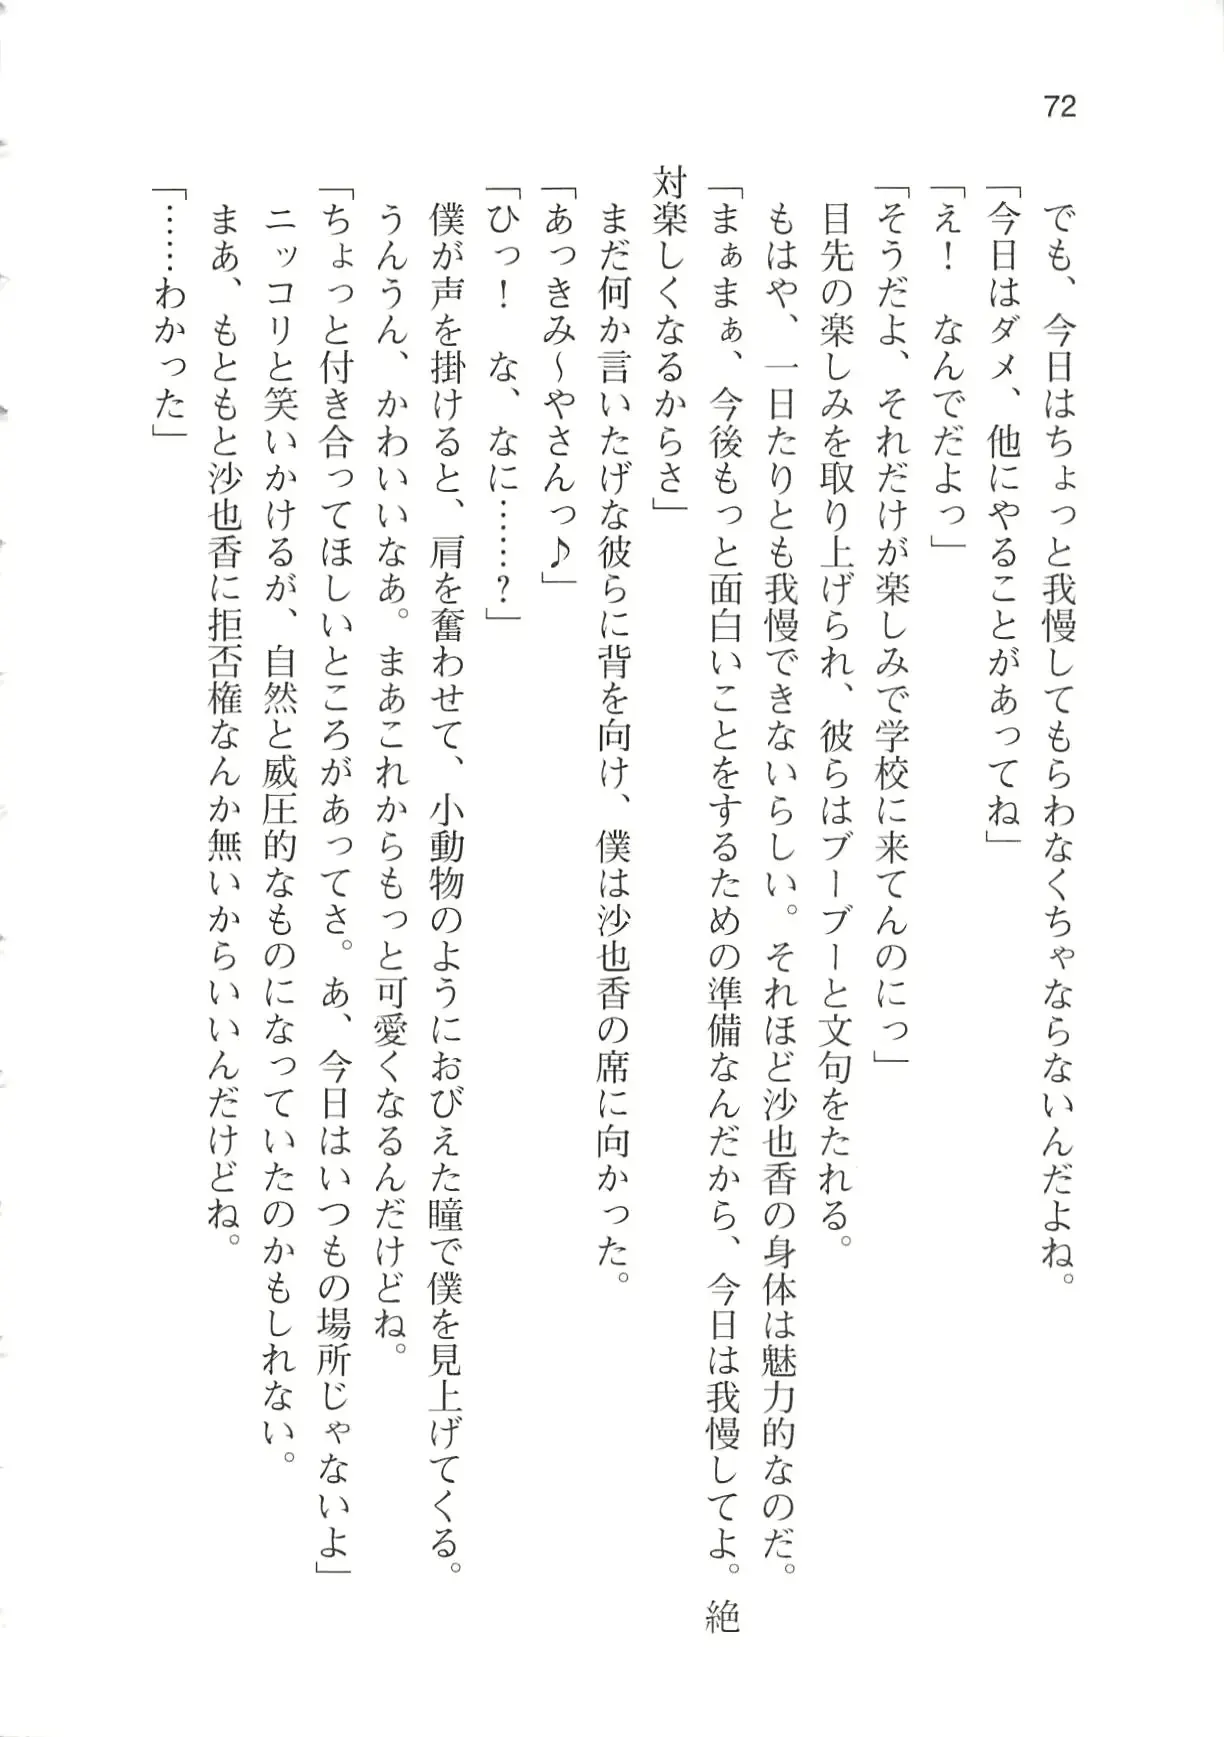 72
でも、今日はちょっと我慢してもらわなくちゃならないんだよね。
「今日はダメ、他にやることがあってね」
「え！　なんでだよっ」
「そうだよ、それだけが楽しみで学校に来てんのにっ」
目先の楽しみを取り上げられ、彼らはブーブーと文句をたれる。
もはや、一日たりとも我慢できないらしい。それほど沙也香の身体は魅力的なのだ。
「まぁまぁ、今後もっと面白いことをするための準備なんだから、今日は我慢してよ。絶
対楽しくなるからさ」
まだ何か言いたげな彼らに背を向け、僕は沙也香の席に向かった。
「あっきみ～やさんっ♪」
「ひっ！　な、なに……？」
僕が声を掛けると、肩を奮わせて、小動物のようにおびえた瞳で僕を見上げてくる。
うんうん、かわいいなぁ。まあこれからもっと可愛くなるんだけどね。
「ちょっと付き合ってほしいところがあってさ。あ、今日はいつもの場所じゃないよ」
ニッコリと笑いかけるが、自然と威圧的なものになっていたのかもしれない。
まあ、もともと沙也香に拒否権なんか無いからいいんだけどね。
「……わかった」